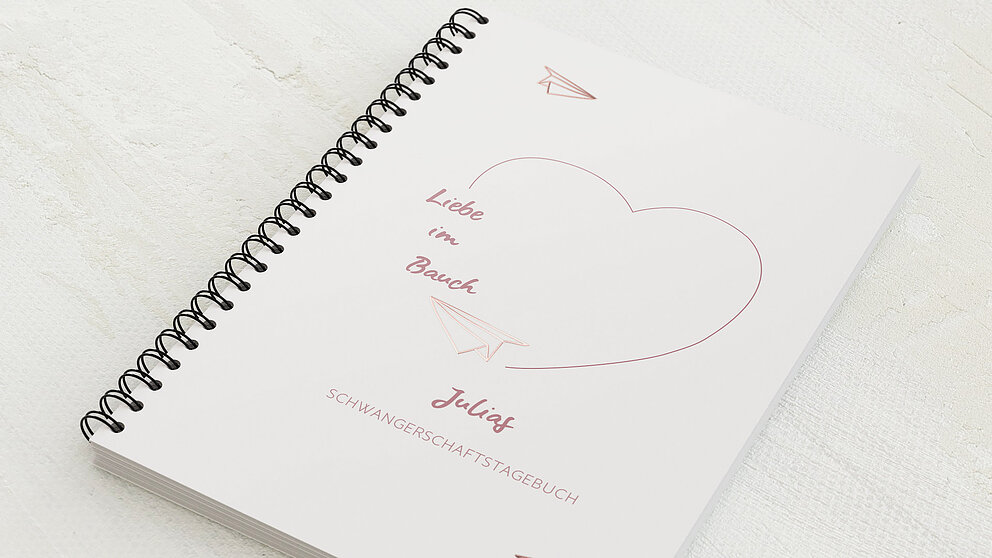 Liebe
im
Bauch
Julias
SCHWANGERSCHAFTSTAGEBUCH